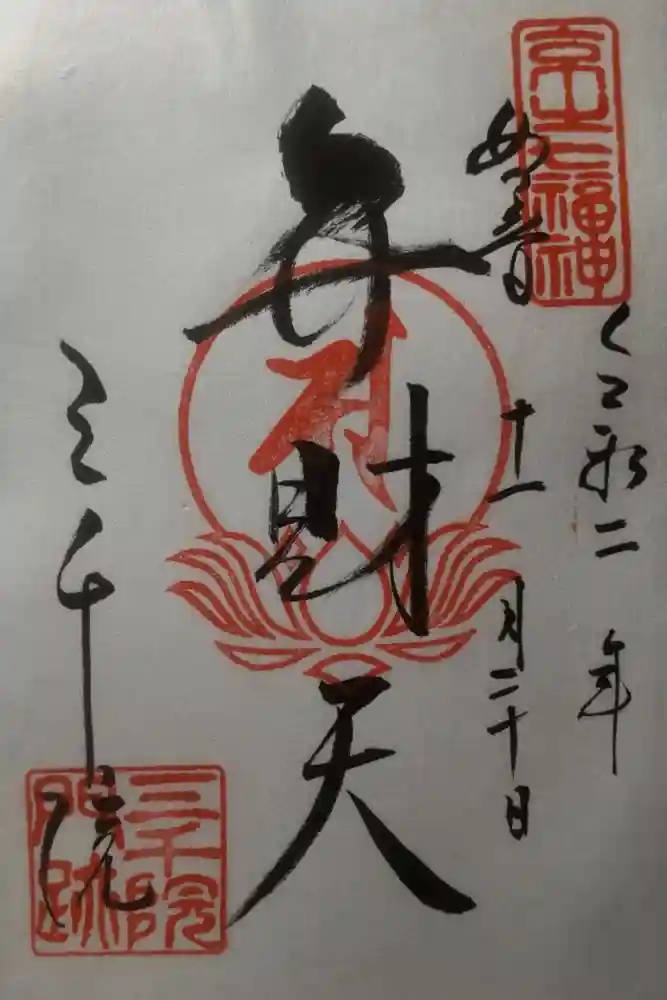 京之七福神
令和二年
十一月二十日
妙音
弁財天
三千院
三千院
門跡